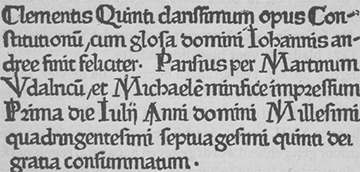 Clementis Quinti clarissimum opus Con-
stitutionū, cum glosa domini Iohannis an-
dree finit feliciter. Parisius per Martinum
Vdalricū, et Michaelē mirifice impressum
Prima die Iulij Anni domini Millesimi
quadringentesimi septuagesimi quinti dei
gratia consummatum.